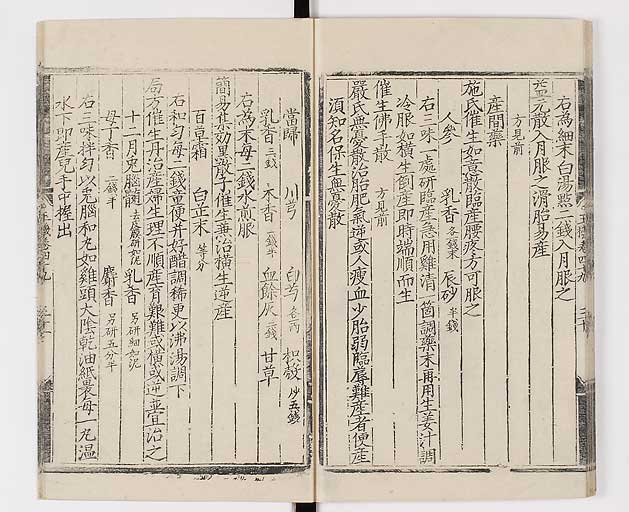 右為細末白湯點二錢入月服之
益元散入月服之滑胎易產
方見前
產間藥
施氏催生如意散臨產腰疼方可服之
人參 乳香各錢末 辰砂半錢
右三味一處研臨產急用雞清一箇調藥末再用生姜汁調
冷服如橫生倒產即時端順而生
催生佛手散
方見前
嚴氏無憂散治胎肥氣逆或人瘦血少胎弱臨蓐難產者便產
須知名保生無憂散
當歸 川芎 白芍各兩 枳殼炒五錢
乳香三錢 木香一錢半 血餘灰二錢 甘草
右為末每二錢水煎服
簡易朱効黑散子催生兼治橫生逆產
百草霜 白芷末等分
右和勻每二錢童便并好醋調稀更以沸湯調下
局方催生丹治產婦生理不順產育艱難或橫或逆並宜治之
十二月兔腦髓去膜研如泥 乳香另研細如泥
母丁香二錢半 麝香另研五分半
右三味拌勻以兔腦和丸如雞頭大陰乾油紙裹每一丸溫
水下即產兒手中握出